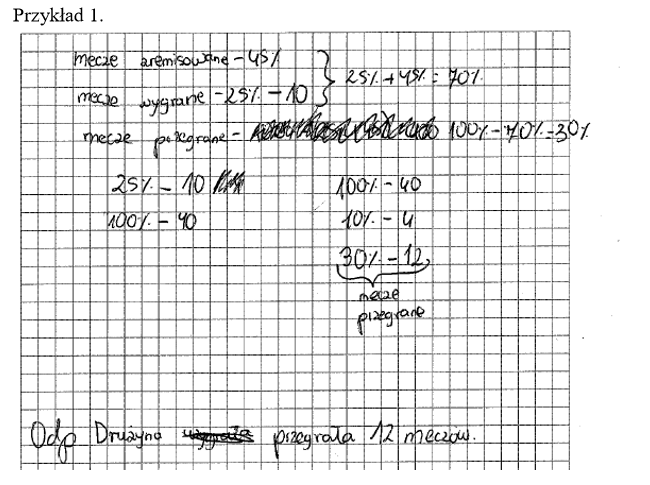 Przykład 1.
mecze zremisowane - 45%
mecze wygrane - 25% - 10
25% + 45% = 70%
mecze przegrane - 100% - 70% = 30%
25% - 10
100% - 40
100% - 40
10% - 4
30% - 12
mecze
przegrane
Odp Drużyna wygrała przegrała 12 meczów.